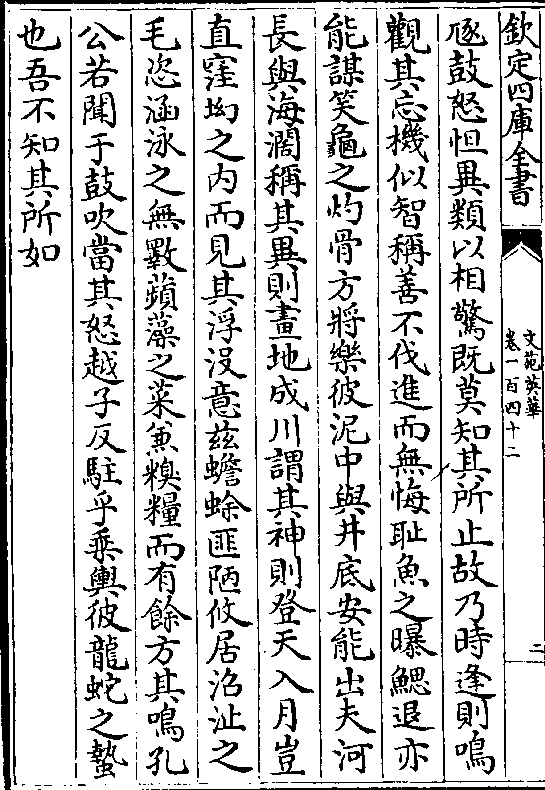 欽定四庫全書
文苑英華
卷一百四十二
二
逐鼓怒怛異類以相驚既莫知其所止故乃時逢則鳴
觀其忘機似智稱善不伐進而無悔耻魚之曝鰓退亦
能謀笑龜之灼骨方將樂彼泥中與井底安能出夫河
長與海濶稱其異則畫地成川謂其神則登天入月豈
直窪坳之内而見其浮没意兹蟾蜍匪陋攸居沼沚之
毛恣涵泳之無斁蘋藻之菜兼糗糧而有餘方其鳴孔
公若聞于鼓吹當其怒越子反駐乎乘輿彼龍蛇之蟄
也吾不知其所如